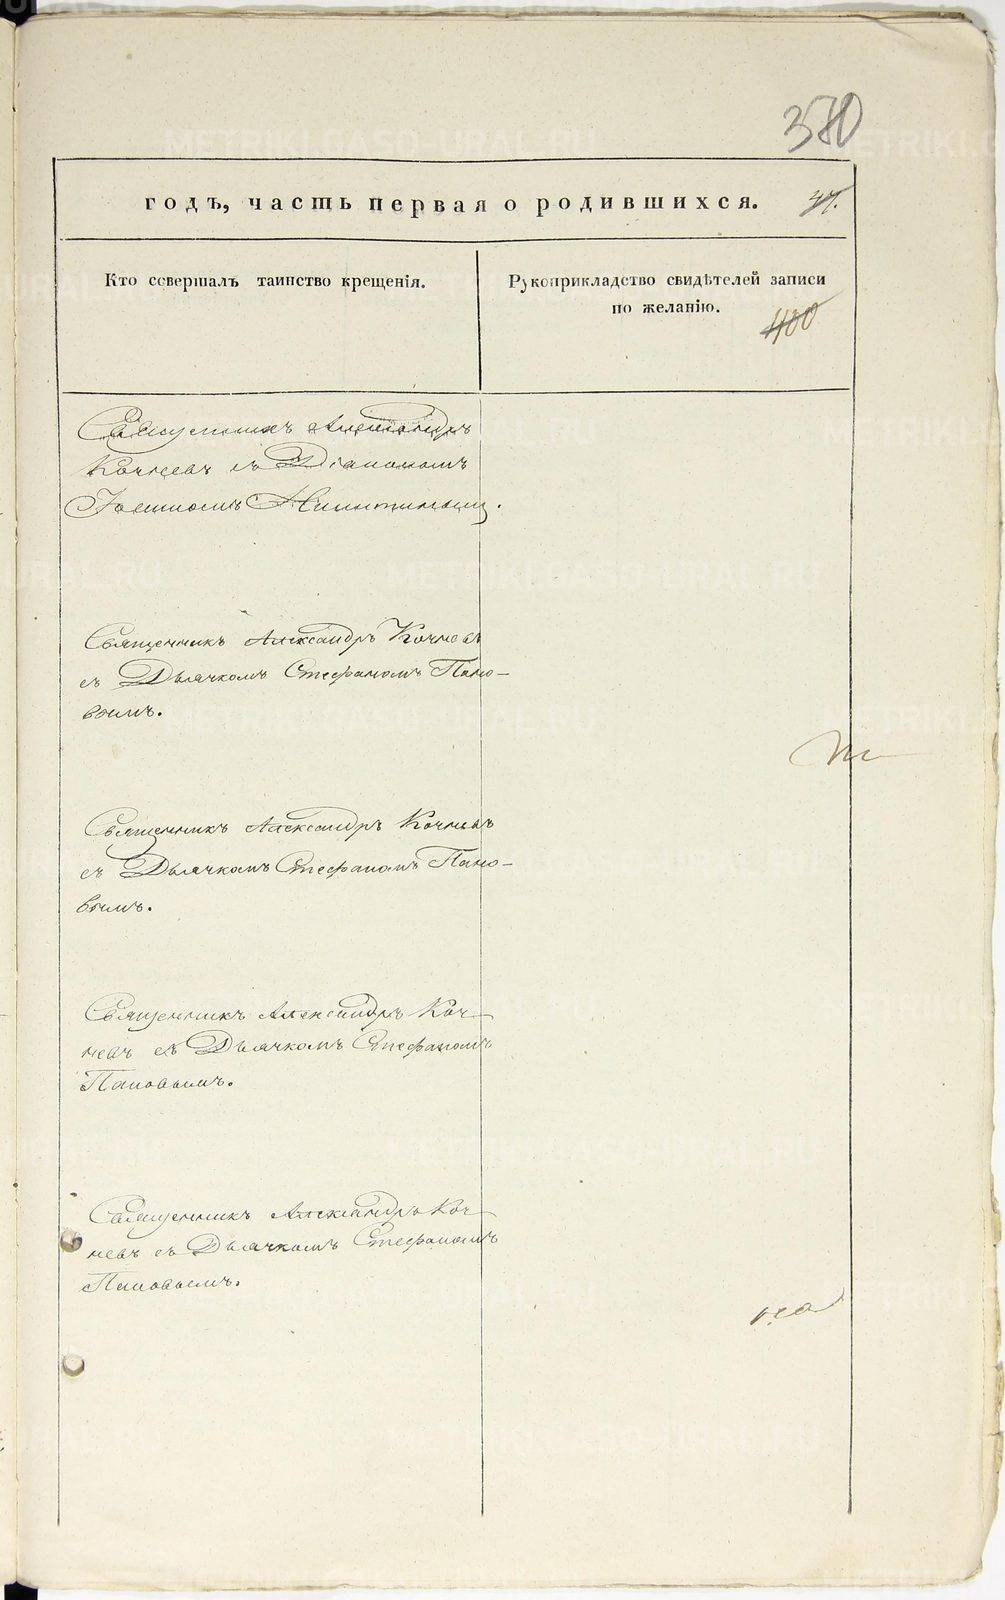 370
годъ, часть первая о родившихся.
37.
Кто совершалъ таинство крещенія.
Рукоприкладство свидѣтелей записи
по желанію.
400
Священникъ Александръ
Кочневъ съ Діакономъ
Іоанномъ Никитинымъ.
Священникъ Александръ Кочневъ
съ Дьячкомъ Стефаномъ Пано-
вымъ.
Священникъ Александръ Кочневъ
съ Дьячкомъ Стефаномъ Пано-
вымъ.
Священникъ Александръ Коч-
невъ съ Дьячкомъ Стефаномъ
Пановымъ.
Священникъ Александръ Коч-
невъ съ Дьячкомъ Стефаномъ
Пановымъ.
METRIKI.GASO-URAL.RU